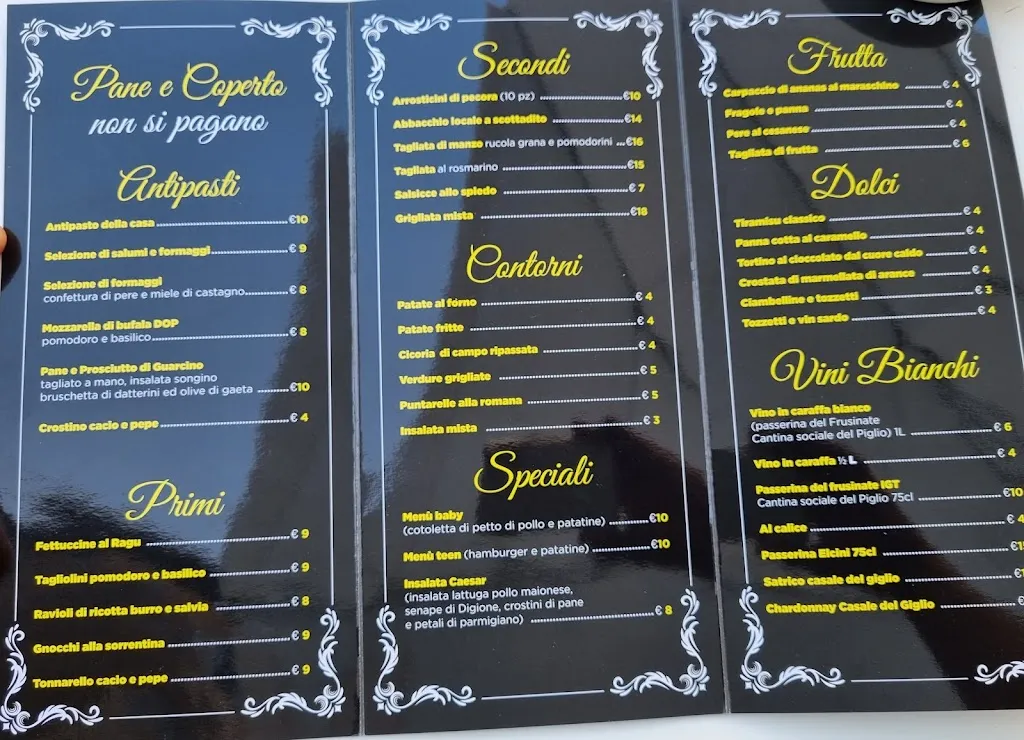 Pane e Coperto
non si pagano
Antipasti
Antipasto della casa €10
Selezione di salumi e formaggi € 9
Selezione di formaggi
confettura di pere e miele di castagno € 8
Mozzarella di bufala DOP
pomodoro e basilico € 8
Pane e Prosciutto di Guarcino
tagliato a mano, insalata songino
bruschetta di datterini ed olive di gaeta €10
Crostino cacio e pepe € 4
Primi
Fettuccine al Ragu € 9
Tagliolini pomodoro e basilico € 9
Ravioli di ricotta burro e salvia € 8
Gnocchi alla sorrentina € 9
Tonnarello cacio e pepe € 9
Secondi
Arrosticini di pecora (10 pz) €10
Abbacchio locale a scottadito €14
Tagliata di manzo rucola grana e pomodorini €16
Tagliata al rosmarino €15
Salsicce allo spiedo € 7
Grigliata mista €18
Contorni
Patate al forno € 4
Patate fritte € 4
Cicoria di campo ripassata € 4
Verdure grigliate € 5
Puntarelle alla romana € 5
Insalata mista € 3
Speciali
Menù baby
(cotoletta di petto di pollo e patatine) €10
Menù teen (hamburger e patatine) €10
Insalata Caesar
(insalata lattuga pollo maionese,
senape di Digione, crostini di pane
e petali di parmigiano) € 8
Frutta
Carpaccio di ananas al maraschino € 4
Fragole e panna € 4
Pere al cesanese € 4
Tagliata di frutta € 6
Dolci
Tiramisu classico € 4
Panna cotta al caramello € 4
Tortino al cioccolato dal cuore caldo € 4
Crostata di marmellata di arance € 4
Ciambelline e tozzetti € 3
Tozzetti e vin sardo € 4
Vini Bianchi
Vino in caraffa bianco
(passerina del Frusinate
Cantina sociale del Piglio) 1L € 6
Vino in caraffa ½ L € 4
Passerina del frusinate IGT
Cantina sociale del Piglio 75cl €10
Al calice € 4
Passerina Elcini 75cl
Satrico casale del giglio
Chardonnay Casale del Giglio